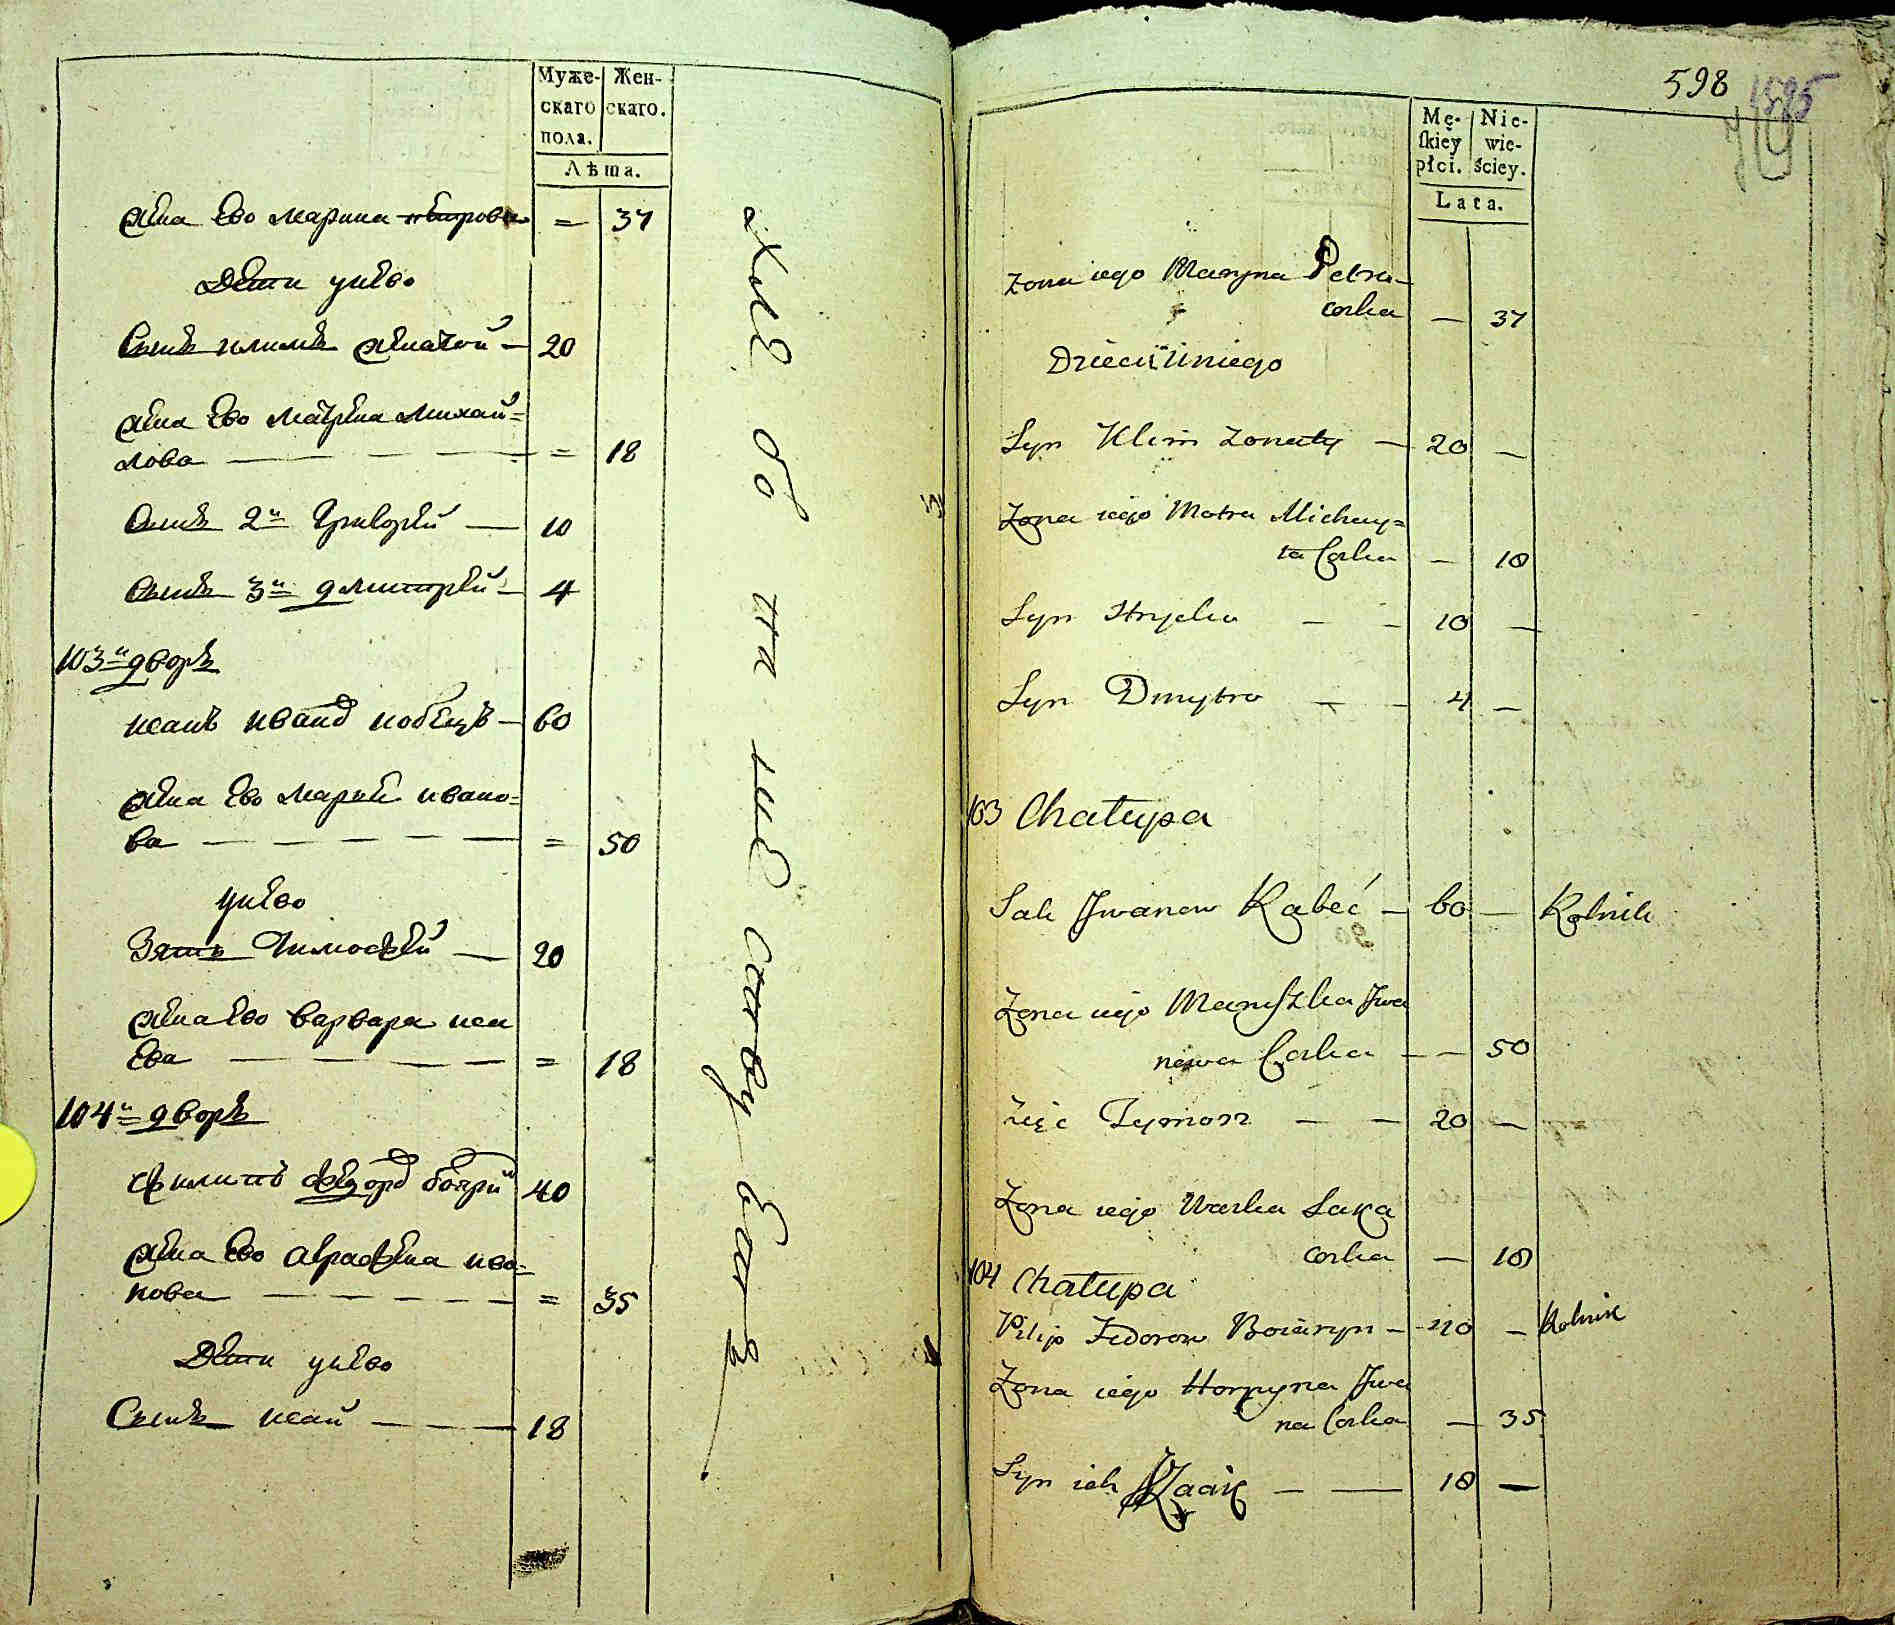 Муже-
скаго
пола.
Жен-
скаго.
Лѣта.
жена ево марина петрова = 37
Дети унево
Сынъ климъ женатой — 20
жена ево матрена михай=
лова — — — — = 18
Сынъ 2й григорей — 10
Сынъ 3й дмитрей — 4
103й дворъ
исакъ иванов кобецъ — 60
жена ево марья ивано=
ва — — — — = 50
унево
Зять Тимофей — 20
жена ево варвара иса
ева — — — — = 18
104й дворъ
филипъ федоров бояри 40
жена ево аграфена ива=
нова — — — — = 35
Дети унево
Сынъ исай — — — 18
598
1595
Mę-
skiey
płci.
Nie-
wie-
ściey.
Lata.
Zona iego Maryna Petro-
corka — 37
Dzieci Uniego
Syn Klim Zonaty — 20 —
Zona iego Motra Michay=
ła Corka — 18
Syn Hryćko — — 10 —
Syn Dmytro — — 4 —
103 Chałupa
Sak Jwanow Kabeć — 60 — Rolnik
Zona iego Maryszka Jwa
nowa Corka — — 50
Zięć Tymosz — — 20 —
Zona iego Warka Saka
corka — 18
104 Chałupa
Pilip Fedorow Boiaryn — 40 — Rolnik
Zona iego Horpyna Jwa
na Corka — 35
Syn ich — — 18 —